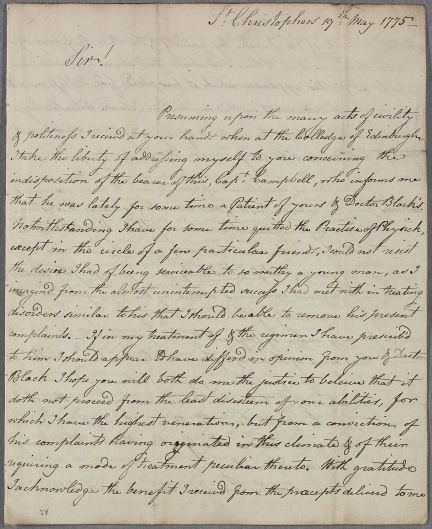 St. Christophers 19th. May 1775 -
Sir!
Presuming upon the many acts of civility
& politeness I receiv'd at your hands when at the Colledge of Edinburgh,
I take the liberty of addressing myself to you concerning the
indisposition of the bearer of this, Capt. Campbell, who informs me
that he was lately for some time a Patient of yours & Doctor Black's
Notwithstanding I have for some time quitted the Practise of Physick,
except in the circle of a few particular friends, I could not resist
the desire I had of being serviceable to so worthy a young man, as I
imagin'd from the almost uninterrupted success I had met with in treating
disorders similar to his that I should be able to remove his present
complaints. - If in my treatment of & the regimen I have prescrib'd
to him I should appear to have differ'd in opinion from you & Doctor
Black I hope you will both do me the justice to believe that it
doth not proceed from the least disesteem of your abilities, for
which I have the highest veneration, but from a conviction of
his complaints having originated in this climate & of their
requiring a mode of treatment peculiar thereto. With gratitude
I acknowledge the benefit I receiv'd from the precepts deliver'd to me